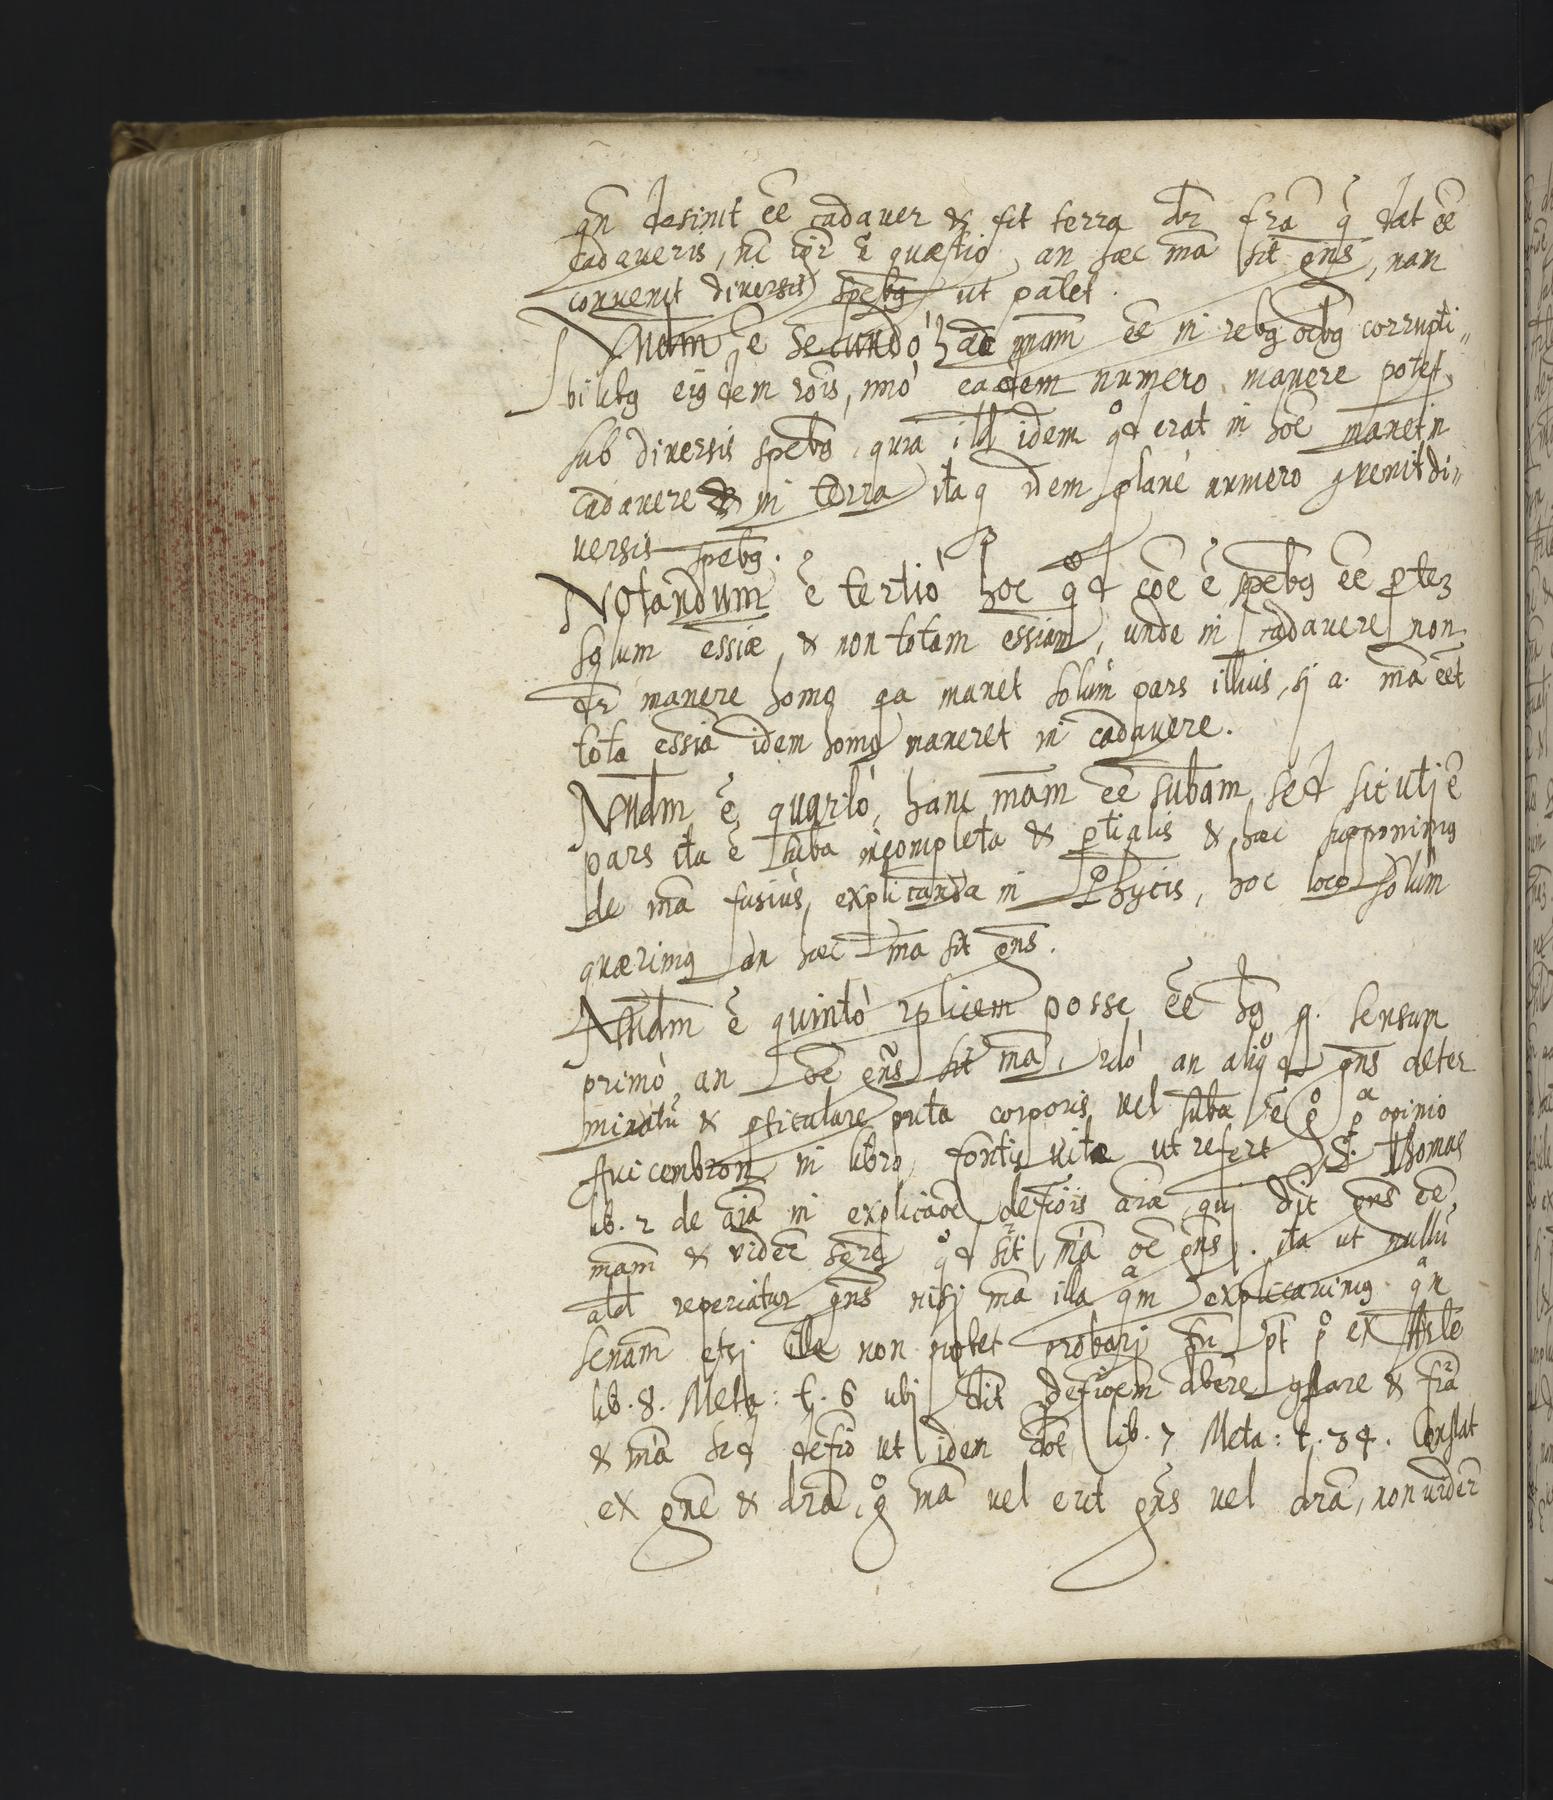 qn̄ desinit ēē cadauer & fit terra dr̄ frā q̄ dat ēē
cadaueris, nc̄ igr̄ ē quæstio, an hæc mā sit gn̄s, nam
conuenit diuersis spēbꝫ ut patet.
Nndm̄ ē Secundò hāc mām ēē in rebꝫ oībꝫ corrupti„
bilibꝫ eiꝰdem rōis, imò eadem numero manere potest
sub diuersis spēbꝫ, quia ill̄d idem qd̊ erat in hōē manet in
cadauere & in terra itaq idem planè numero ꝯuenit di„
uersis spēbꝫ.
Notandum ē tertiò hoc qd̊ cōē ē spēbꝫ ēē ꝑtem
solum ess̄iæ, & non totam ess̄iam, unde in cadauere non
dr̄ manere homo qa manet solùm pars illius, si a. mā eēt
tota ess̄ia idem homo maneret in cadauere.
Nndm̄ ē quartò, hanc mām ēē sub̄am, sed sicuti ē
pars ita ē sub̄a incompleta & ꝑtialis & hæc supponimꝰ
de mā fusiùs explicanda in Phycis, hoc loco solùm
quærimꝰ an hæc mā sit gn̄s.
Nndm̄ ē quintò 2plicem posse ēē hꝰ q. sensum
primò an oē gn̄s sit mā, 2dò an aliqd̊ gn̄s deter
minatū & ꝑticulare puta corporis vel sub̄æ ē g̊ pa opinio
Auicembron in libro fontis vitæ ut refert S. Thomas
lib. 2 de aīa in explicaōē defiōis aīæ qui dīt gn̄s ēē
mām & vider̄ sēre qd̊ sit mā oē gn̄s. ita ut nullū
al̄d reperiatur gn̄s nisi mā illa qm explicauimꝰ qn
sen̄am etsi illa non potet probari tn̄ pt̄ pº ex Ar̄le
lib. 8. Meta: t. 6 ubi dīt defiōem dbēre ꝯstare & frā
& mā sed defiō ut idem dōt lib. 7 Meta: t. 34. Constat
ex gn̄ē & drā, g̊ mā uel erit gn̄s uel drā, non uider̄